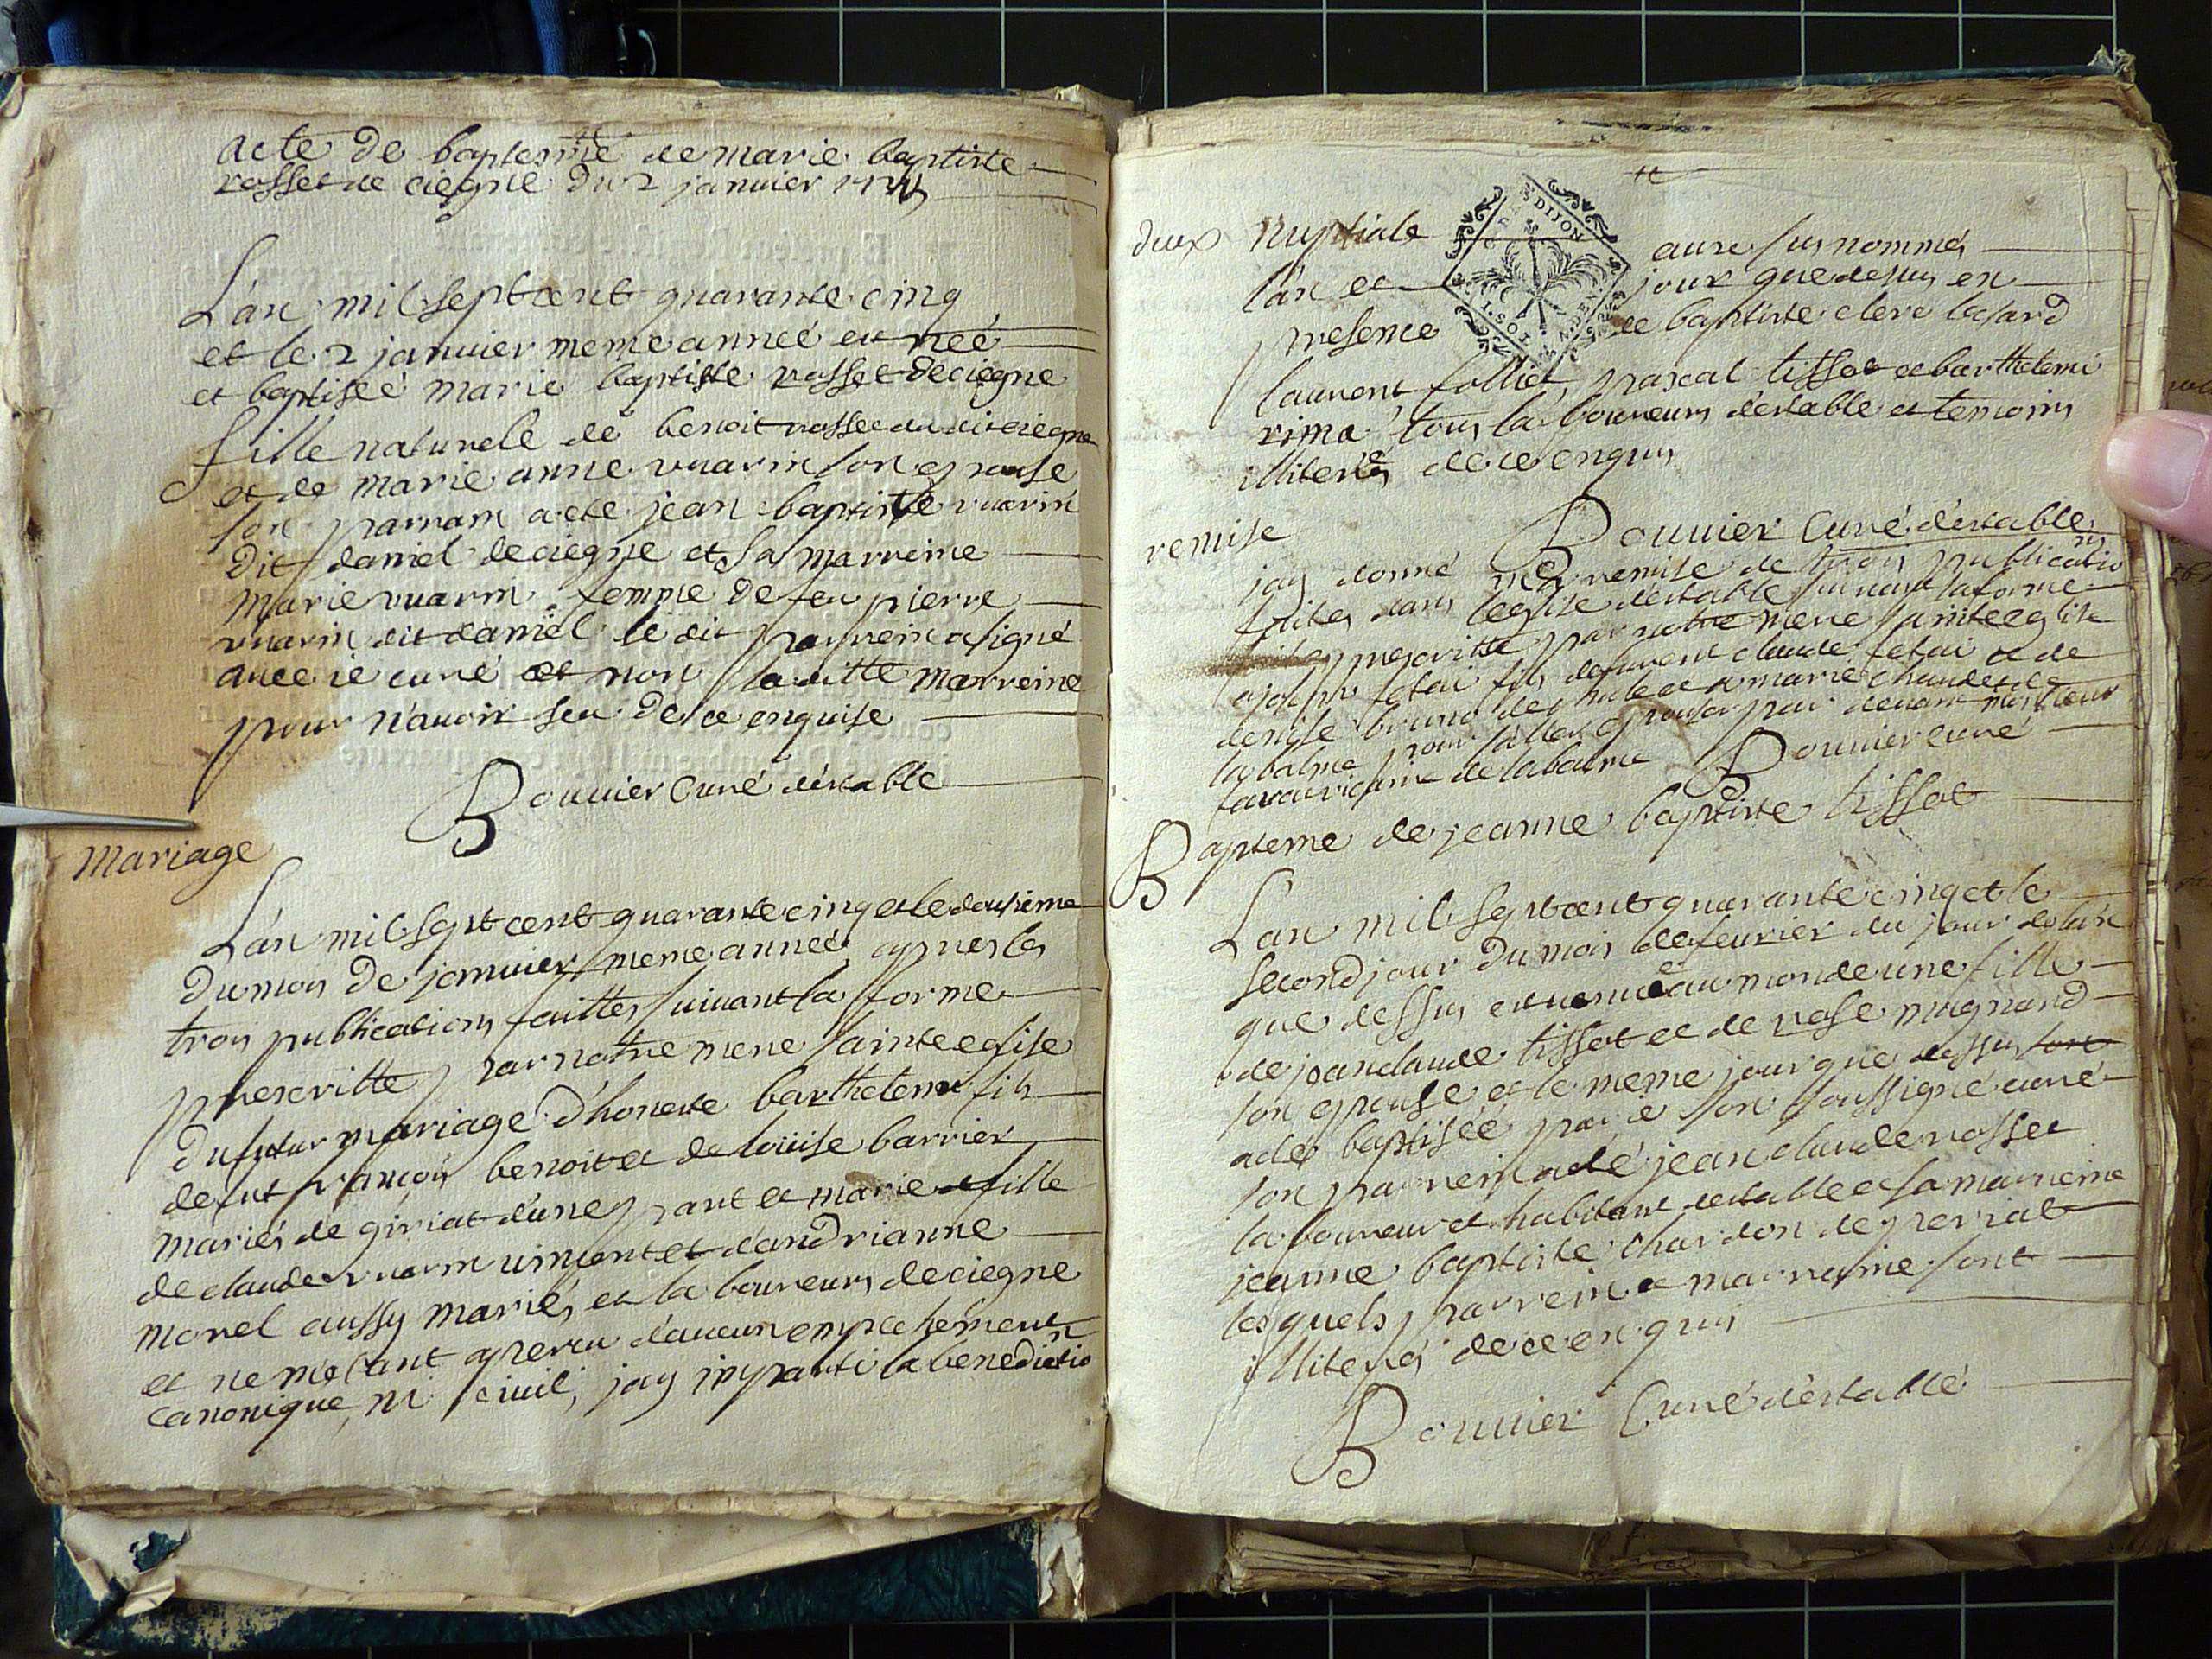 acte de baptesme de marie baptiste
rosset de ciegne du 2 janvier 1745
L'an mil sept cent quarante cinq
et le 2 janvier meme anneé est neé
et baptiseé marie baptiste rosset de ciegne
fille naturele de benoit rosset du dit ciegne
et de marie anne vuarin son epouse
son parrain a eté jean baptiste vuarin
dit daniel de ciegne et sa marreine
marie vuarin femme de feu pierre
vuarin dit daniel le dit parrein a signé
avec le curé et non la ditte marreine
pour n'avoir seu de ce enquise
Bouvier Curé d'estable
Mariage
L'an mil sept cent quarante cinq et le deusieme
du mois de janvier meme anneé, apres les
trois publications faittes suivant la forme
prescritte par notre mere sainte eglise
du futur mariage d'honete barthelemi fils
de fut françois benoit et de louise barrier
mariés de giriat d'une part et marie fille
de claude vuarin vincent et d'andrianne
morel aussy mariés et laboureurs de ciegne
et ne m'etant aperçu d'aucun empechement
canonique, ni civil, jay imparti la benedictio
deux Nuptiale aux susnommés
l'an et jour que dessus en
presence de baptiste clerc lasard
DIJON
laurent folliet, pascal tissot et barthelemi
rima tous laboureurs d'estable et temoins
illiterés de ce enquis
Bouvier Curé d'estable
remise
jay donné ma remise de trois publicatio
faites dans l'eglise d'estable suivant la forme
prescritte par notre mere sainte eglise
a joseph fetai fils de laurent claude fetai et de
denise
la balme pour aller epouser par devant monsieur
de la balme Bouvier curé
Bapteme de jeanne baptiste tissot
L'an mil sept cent quarante cinq et le
second jour du mois de fevrier du jour de l'an
que dessus est venue au monde une fille
de jean claude tissot et de rose mognard
son epouse et le meme jour que dessus
a eté baptiseé par le soussigné curé
son parrein a eté jean claude rosset
laboureur et habitant d'estable et sa marreine
jeanne baptiste chardon de periat
les quels parrein et marreine sont
illiterés de ce enquis
Bouvier Curé d'estable